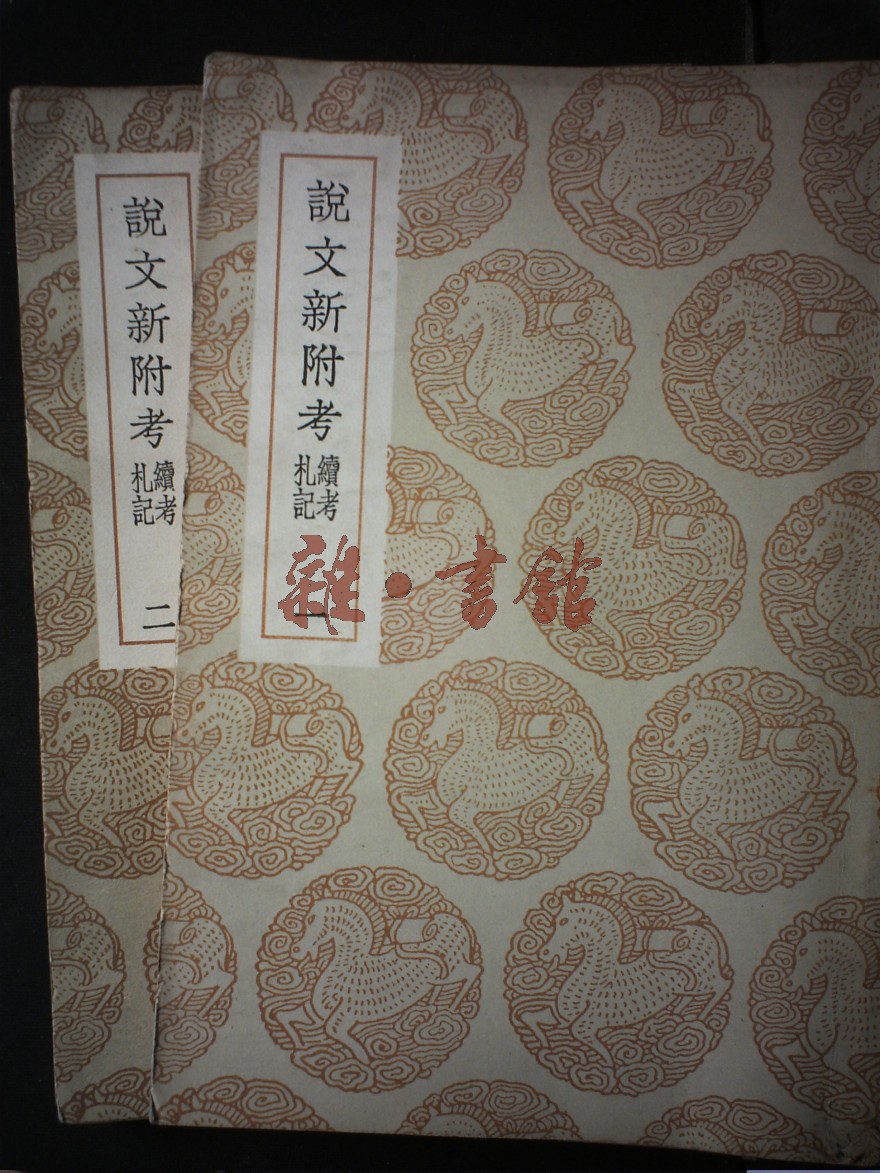 說文新附考
續考
札記
一
說文新附考
續考
札記
二
雜·書館